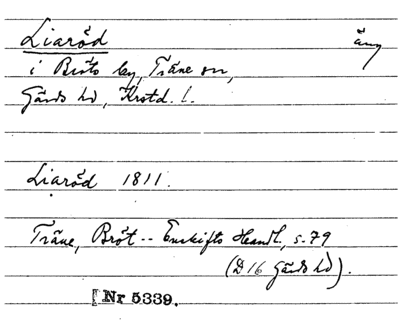 Liaröd äng
i Bröts by, Träne sn,
Gärds hd, Krstd. l.
Liaröd 1811.
Träne, Bröt -- Enskifts Handl., s. 79
(D 16 Gärds hd).
[Nr 5339.